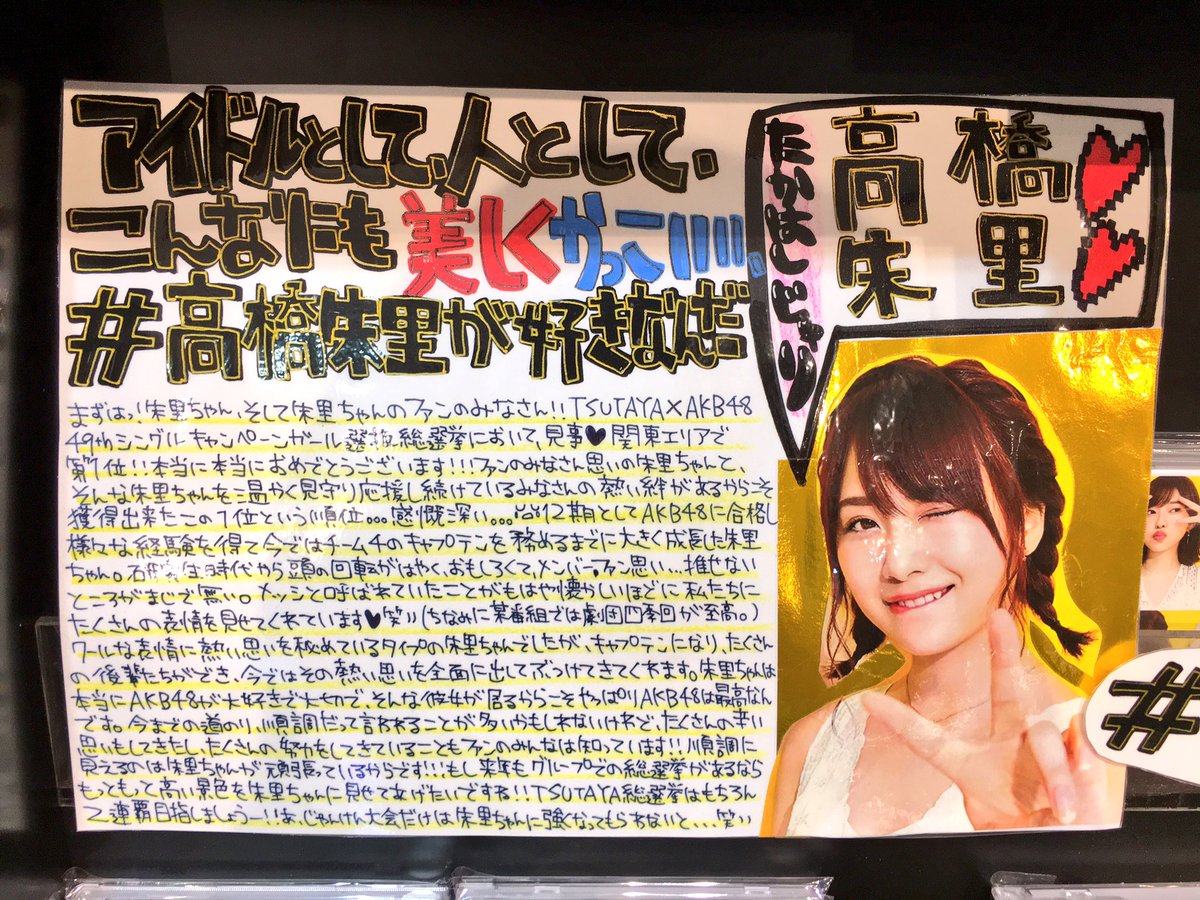 アイドルとして、人として、
こんなにも美しくかっこいい。
#高橋朱里が好きなんだ
高橋
朱里
たかはしじゅり
まずは、朱里ちゃん、そして朱里ちゃんのファンのみなさん!!TSUTAYA×AKB48
49thシングルキャンペーンガール選抜総選挙において、見事♥関東エリアで
第1位!!本当に本当におめでとうございます!!!ファンのみなさん思いの朱里ちゃんて、
そんな朱里ちゃんを温かく見守り応援し続けているみなさんの熱い絆があるからこそ
獲得出来たこの1位という順位...感慨深い...12期としてAKB48に合格し
様々な経験を得て今ではチーム4のキャプテンを務めるまでに大きく成長した朱里
ちゃん。研究生時代から頭の回転がはやく、おもしろくて、メンバー、ファン思い...推せない
ところがまじで無い。ナッシと呼ばれていたことがもはや懐かしいほどに私たちに
たくさんの表情を見せてくれています♥笑))(ちなみに某番組では劇団四季回が至高。)
クールな表情に熱い思いを秘めているタイプの朱里ちゃんでしたが、キャプテンになり、たくさん
の後輩たちができ、今ではその熱い思いを全面に出してぶつけてきてくれます。朱里ちゃんは
本当にAKB48が大好きで大切で、そんな彼女が居るからこそやっぱりAKB48は最高なん
です。今までの道のり、順調だって言われることが多いかもしれないけれど、たくさんの辛い
思いもしてきたし、たくさんの努力をしてきていることもファンのみんなは知っています!!順調に
見えるのは朱里ちゃんが頑張っているからです!!!もし来年もグループでの総選挙があるなら
もっともっと高い景色を朱里ちゃんに見せてあげたいですね!!TSUTAYA総選挙はもちろん
2連覇目指しましょうー!!あ、じゃんけん大会だけは朱里ちゃんに強くなってもらわないと...笑))
#